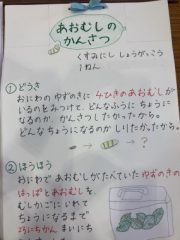 あおむしの
かんさつ
くすみにし しょうがっこう
１ねん
①どうき
おにわの ゆずのきに ４ひきの あおむしが
いるのをみつけて、どんなふうに ちょうに
なるのか、かんさつしたかったから。
どんなちょうになるのか しりたかったから。
→ → ?
②ほうほう
おにわで あおむしが たべていた ゆずのきの
はっぱと あおむしを、
むしかごに いれて
ちょうになるまで
まいにち